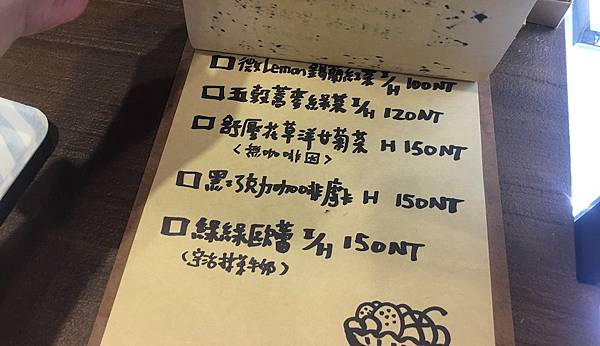 □ 微Lemon錫蘭紅茶 I/H 100NT
□ 五穀蕎麥綠茶 I/H 120NT
□ 舒壓花草洋甘菊茶 H 150NT
(無咖啡因)
□ 黑巧克力咖啡摩卡 H 150NT
□ 綠綠歐蕾 I/H 150NT
(宇治抹茶牛奶)